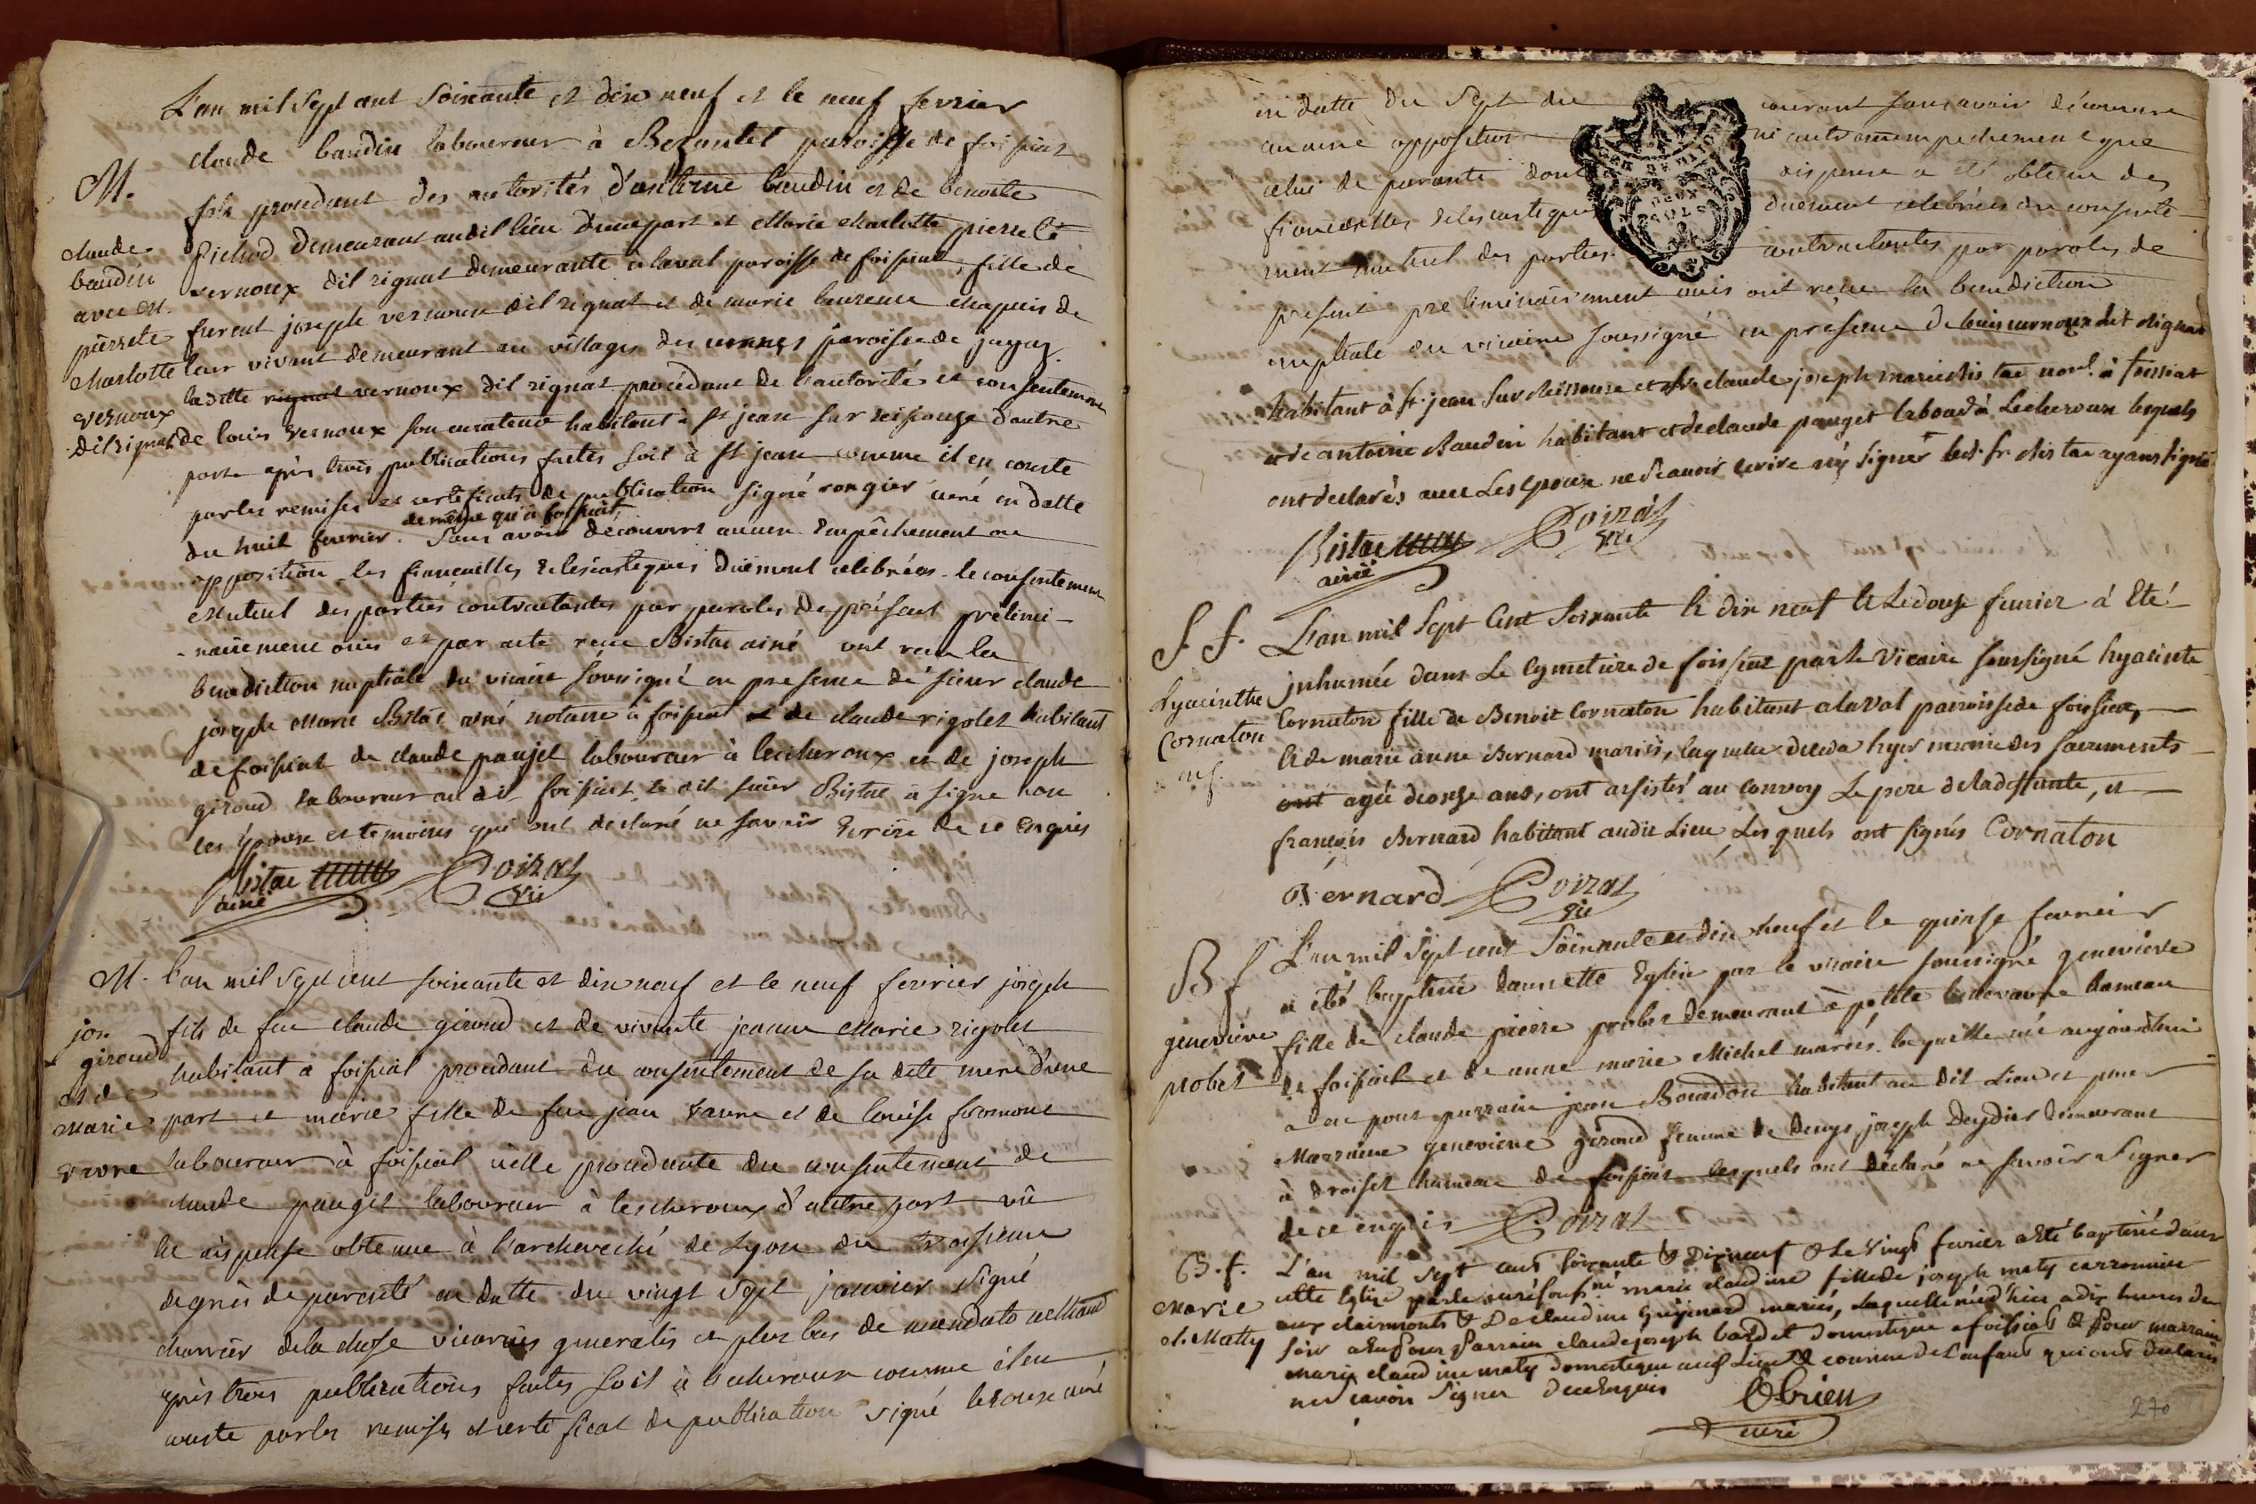 L'an mil sept cent soixante et dix neuf et le neuf fevrier
claude baudin laboureur à Bezontet paroisse de foissiat
M.
fils procedant des autorités d'antoine baudin et de benoite
claude baudin avec M. pierrete Charlotte vernoux dit rignat
Pichod demeurant audit lieu d'une part et Marie Charlotte pierrete
vernoux dit rignat demeurante à laval paroisse de foissiat, fille de
furent joseph vernoux dit rignat et de marie laurence chapuis de
leur vivant demeurant au village des vernes paroisse de jayaz
laditte rignat vernoux dit rignat procédant de l'autorité et consentement
de louis vernoux son curateur habitant à st jean sur reissouze d'autre
part après trois publications faites soit à st jean comme il en conste
par les remises et certificats de publication signé rongier curé en datte
de même qu'à foissiat
du huit fevrier. sans avoir découvert aucun empêchement ou
opposition les fiancailles eclésiastiques düement celebrées le consentement
mutuel des parties contractantes par paroles de présent prélimi-
nairement ouis et par acte recu Bistac ainé ont recu la
benediction nuptiale du vicaire soussigné en presence de sieur claude
joseph Marie Bistac ainé notaire à foissiat et de claude rigolet habitant
de foissiat de claude paujet laboureur à lecheroux et de joseph
giroud laboureur au dit foissiat le dit sieur Bistac a signé non
les époux et temoins qui ont déclaré ne savoir Ecrire de ce Enquis
Bistac ainé Poizat vic
M. l'an mil sept cent soixante et dix neuf et le neuf fevrier joseph
jos. giroud et de Marie vavre
fils de feu claude giroud et de vivante jeanne Marie rigolet
habitant à foissiat procedant du consentement de sa dite mere d'une
part et marie fille de feu jean vavre et de louise fromont
laboureur à foissiat icelle procedante du consentement de
claude pauget laboureur à lescheroux d'autre part vû
la dispense obtenue à l'archeveché de Lyon du troisieme
degrès de parenté en datte du vingt sept janvier signé
charrier de la chose vicarius generalis et plus bas de mandato
après trois publications faites soit à lecheroux comme il en
conste par les remises et certificat de publication signé curé
en datte du sept du courant sans avoir découvert
aucune opposition ni autre empechement que
celui de parenté dont dispense a été obtenue des
fiancailles eclésiastiques duement celebrées du consente-
ment mutuel des parties contractantes par paroles de
present preliminairement ouis ont reçue la benediction
nuptiale du vicaire soussigné en presence de louis vernoux dit rignat
habitant à st. jean sur Reissouze et de claude joseph marie Bistac not. à foissiat
et de antoine Baudin habitant et de claude pauget labour à Lecheroux lesquels
ont declarés avec Les Epoux ne Scavoir ecrire ny signer led. sr. Bistac ayant signé
Bistac ainé Poizat vic
S. f. L'an mil Sept Cent Soixante et dix neuf et Le douze fevrier à Eté
hyacinthe Cornaton
inhumée dans Le Cymetiere de foissiat par le Vicaire soussigné hyacinte
Cornaton fille de Benoit Cornaton habitant a laval paroisse de foissiat,
et de marie anne Bernard mariés, laquelle deceda hyer munie des sacrements
ont agée d'onze ans, ont assistés au Convoy Le pere de la deffunte, et
françois Bernard habitant audit Lieu, Lesquels ont signés Cornaton
Bernard Poizat vic
B f L'an mil sept cent soixante et dix neuf et le quinse fevrier
genevieve probet
a été baptisée dans cette Eglise par le vicaire soussigné genevieve
fille de claude pierre probet demeurant à petite hameau
de foissiat et de anne marie Michel mariés. laquelle née aujourd'hui
a eu pour parrain jean Bourdon habitant au dit Lieu et pour
Marraine genevieve giroud femme de denys joseph Deydier demeurant
à droiset hameau de foissiat lesquels ont déclaré ne savoir signer
de ce enquis Poizat
B. f. L'an mil sept cent soixante & Dix neuf & Le vingt fevrier a Eté baptisée dans
Marie cl. Matty
cette Eglise par le curé souss.né marie claudine fille de joseph maty
aux clairmonts & De claudine Guignard mariés, Laquelle née d'hier a dix heures du
soir a Eu pour Parrain claude joseph bardet Domestique a foissiat & Pour marraine
marie claudine maty Domestique aud. Lieu & cousine de L'enfant qui ont declarés
ne scavoir Signer De ce Enquis OBrien
curé
270